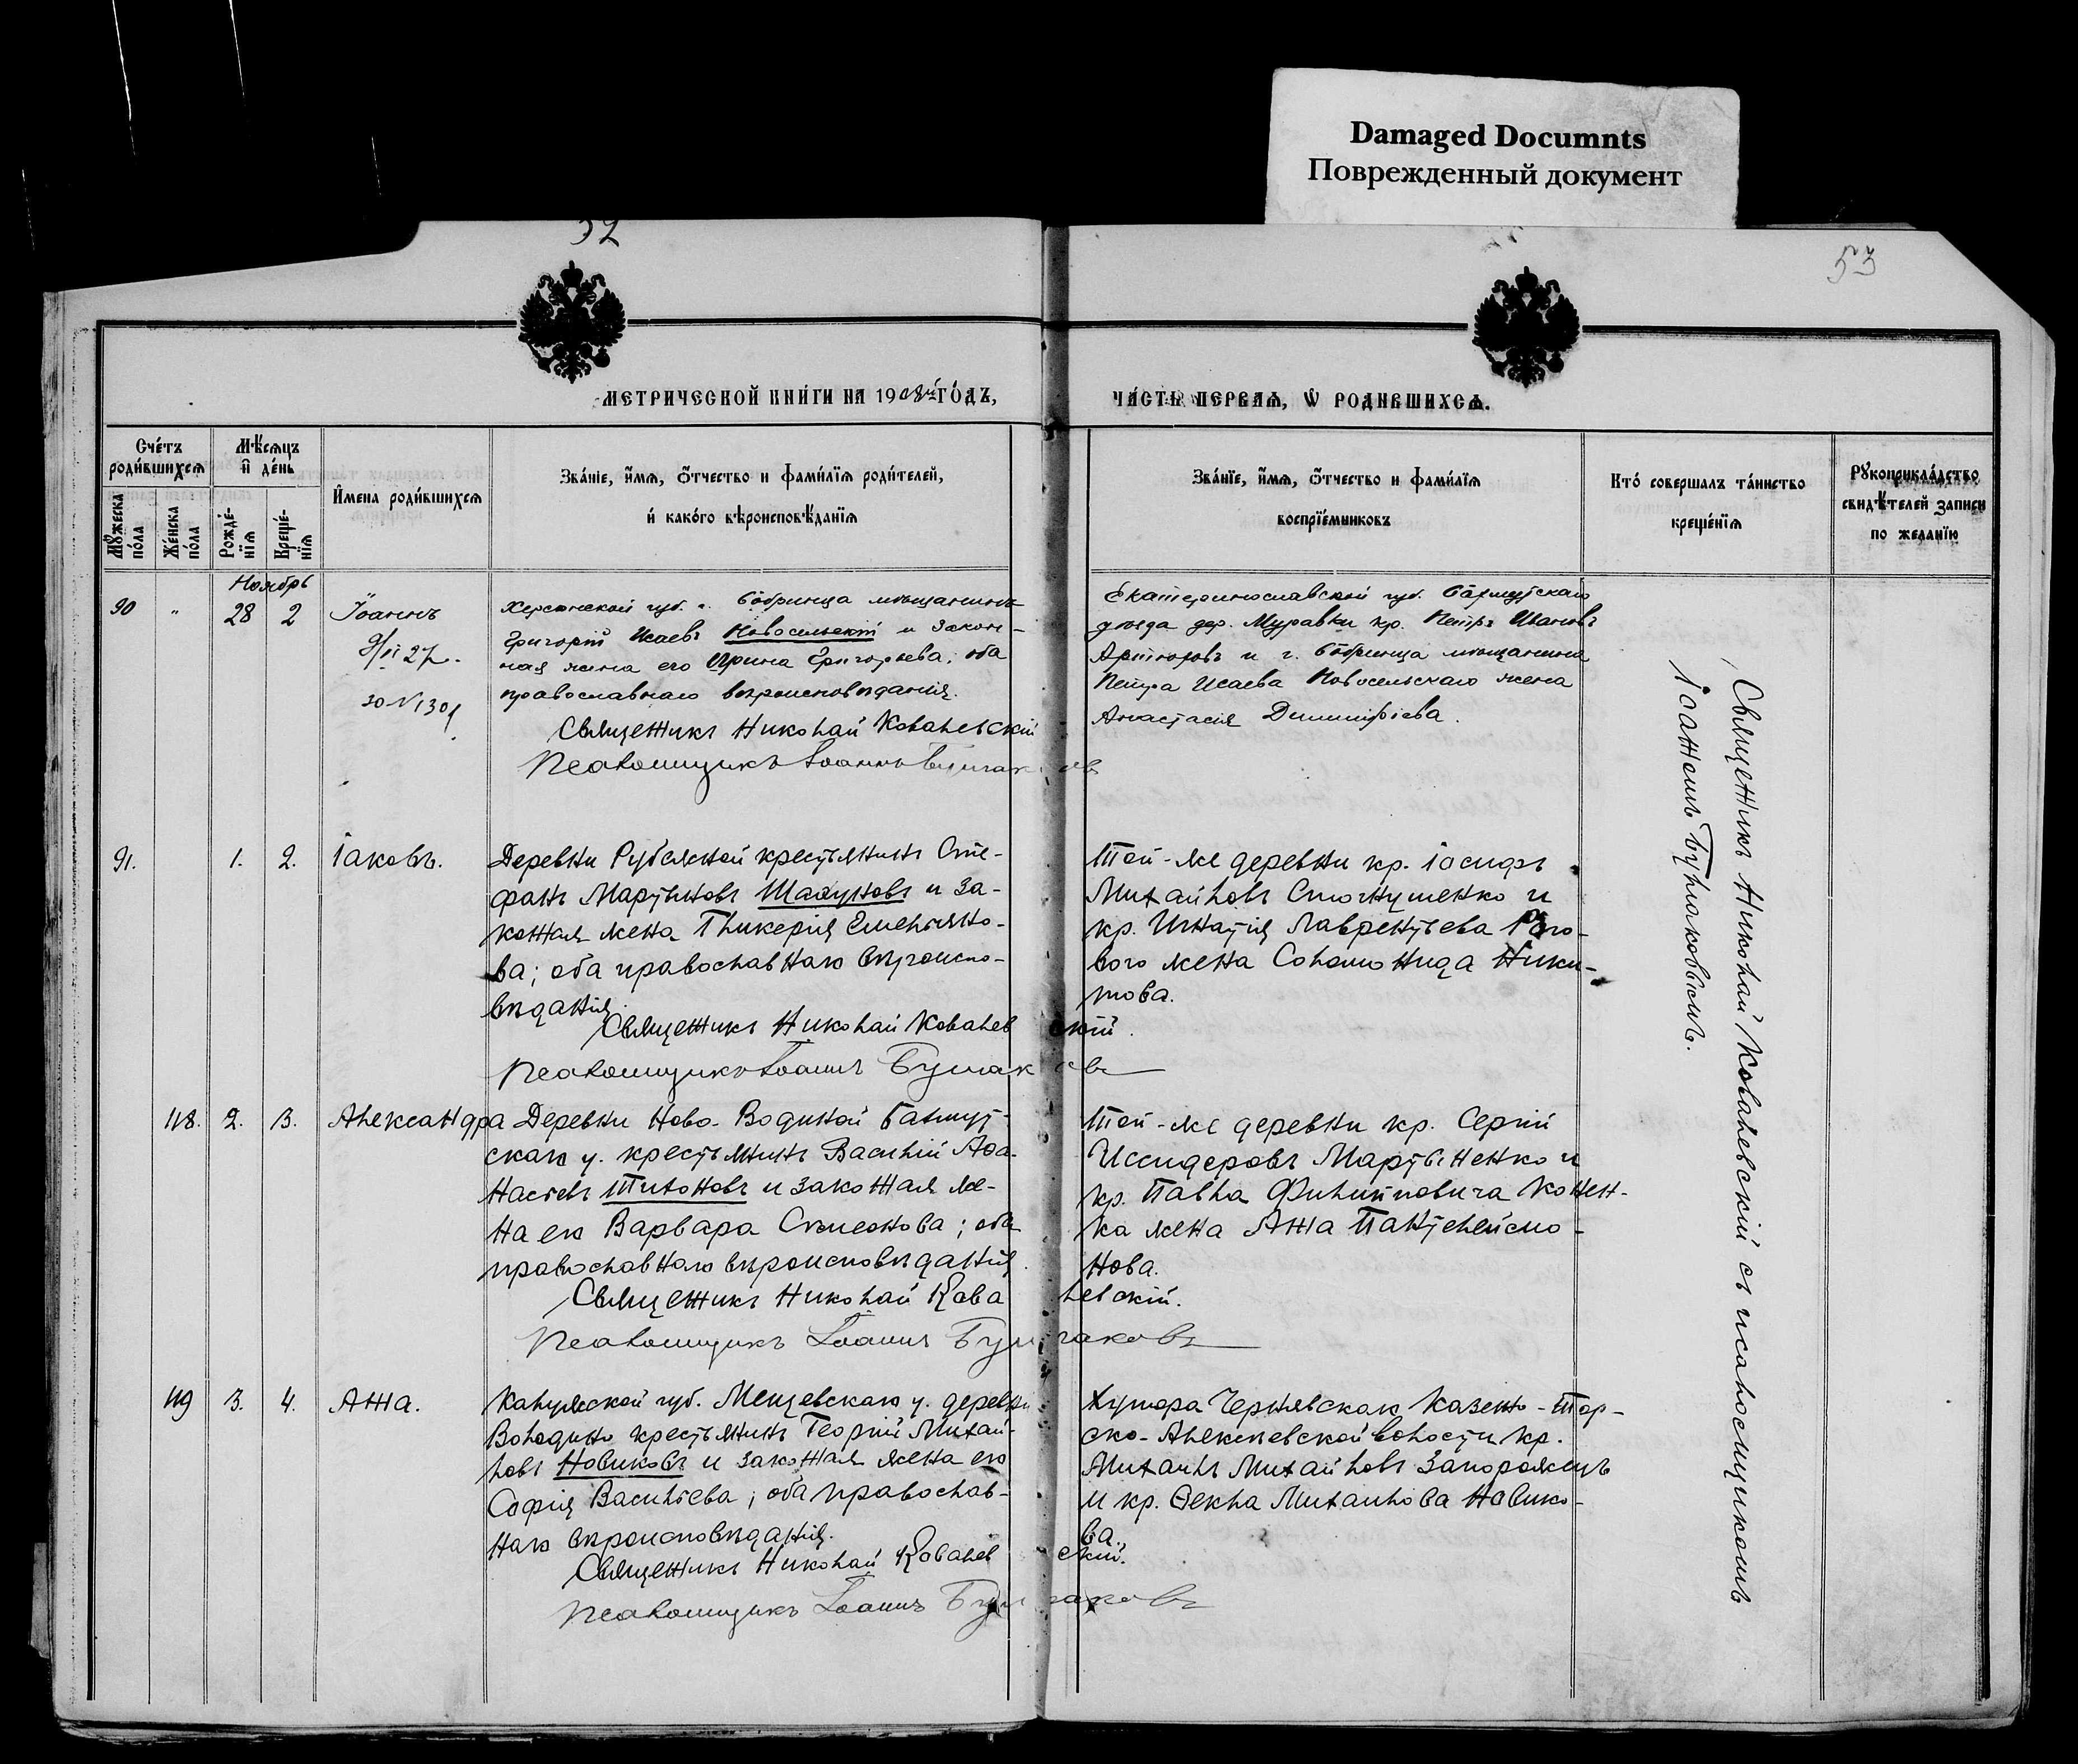 Damaged Documnts
Поврежденный документ
52
53
МЕТРИЧЕСКОЙ КНИГИ НА 1908й ГОДЪ,
ЧАСТЬ ПЕРВАЯ, Ѡ РОДИВШИХСЯ.
Счетъ родившихся
Мужеска пола
Женска пола
Мѣсяцъ и день
Рожде-нія
Креще-нія
Имена родившихся
Званіе, имя, отчество и фамилія родителей,
и какого вѣроисповѣданія
Званіе, имя, отчество и фамилія
воспріемниковъ
Кто совершалъ таинство
крещенія
Рукоприкладство
свидѣтелей записи
по желанію
Ноябрь
90 " 28 2 Іоаннъ
Херсонской губ. г. Бобринца мѣщанинъ
Григорій Исаевъ Новосельскій и закон-
ная жена его Ирина Григорьева; оба
православнаго вѣроисповѣданія.
Священникъ Николай Ковалевскій
Псаломщикъ Іоаннъ Булгаковъ
Екатеринославской губ. Бахмутскаго
уѣзда дер. Муравки кр. Петръ Ивановъ
и г. Бобринца мѣщанина
Петра Исаева Новосельскаго жена
Анастасія Димитріева.
91. 1. 2. Іаковъ.
Деревни Рубежной крестьянинъ Сте-
фанъ Мартыновъ Шалуновъ и за-
конная жена Гликерія Емельяно-
ва; оба православнаго вѣроиспо-
вѣданія.
Священникъ Николай Ковалевскій.
Псаломщикъ Іоаннъ Булгаковъ
Той-же деревни кр. Іосифъ
Михайловъ и
кр. Игнатія Лаврентьева Рого-
вого жена Соломонида Ники-
това.
118. 2. 3. Александра
Деревни Ново-Водяной Бахмут-
скаго у. крестьянинъ Василій Аѳа-
насіевъ Тихоновъ и законная же-
на его Варвара Симеонова; оба
православнаго вѣроисповѣданія.
Священникъ Николай Ковалевскій.
Псаломщикъ Іоаннъ Булгаковъ
Той-же деревни кр. Сергій
Иссидоровъ Мартыненко и
кр. Павла Филипповича Конен-
ка жена Анна Пантелеймо-
нова.
119 3. 4. Анна.
Калужской губ. Мещевскаго у. деревни
Володино крестьянинъ Георгій Михай-
ловъ Новиковъ и законная жена его
Софія Васильева; оба православ-
наго вѣроисповѣданія.
Священникъ Николай Ковалевскій.
Псаломщикъ Іоаннъ Булгаковъ
Хутора Чернявскаго Казенно-Тор-
ско-Алексѣевской волости кр.
Михаилъ Михайловъ Запорожецъ
и кр. Ѳекла Михаилова Новико-
ва.
Священникъ Николай Ковалевскій съ псаломщикомъ
Іоанномъ Булгаковымъ.